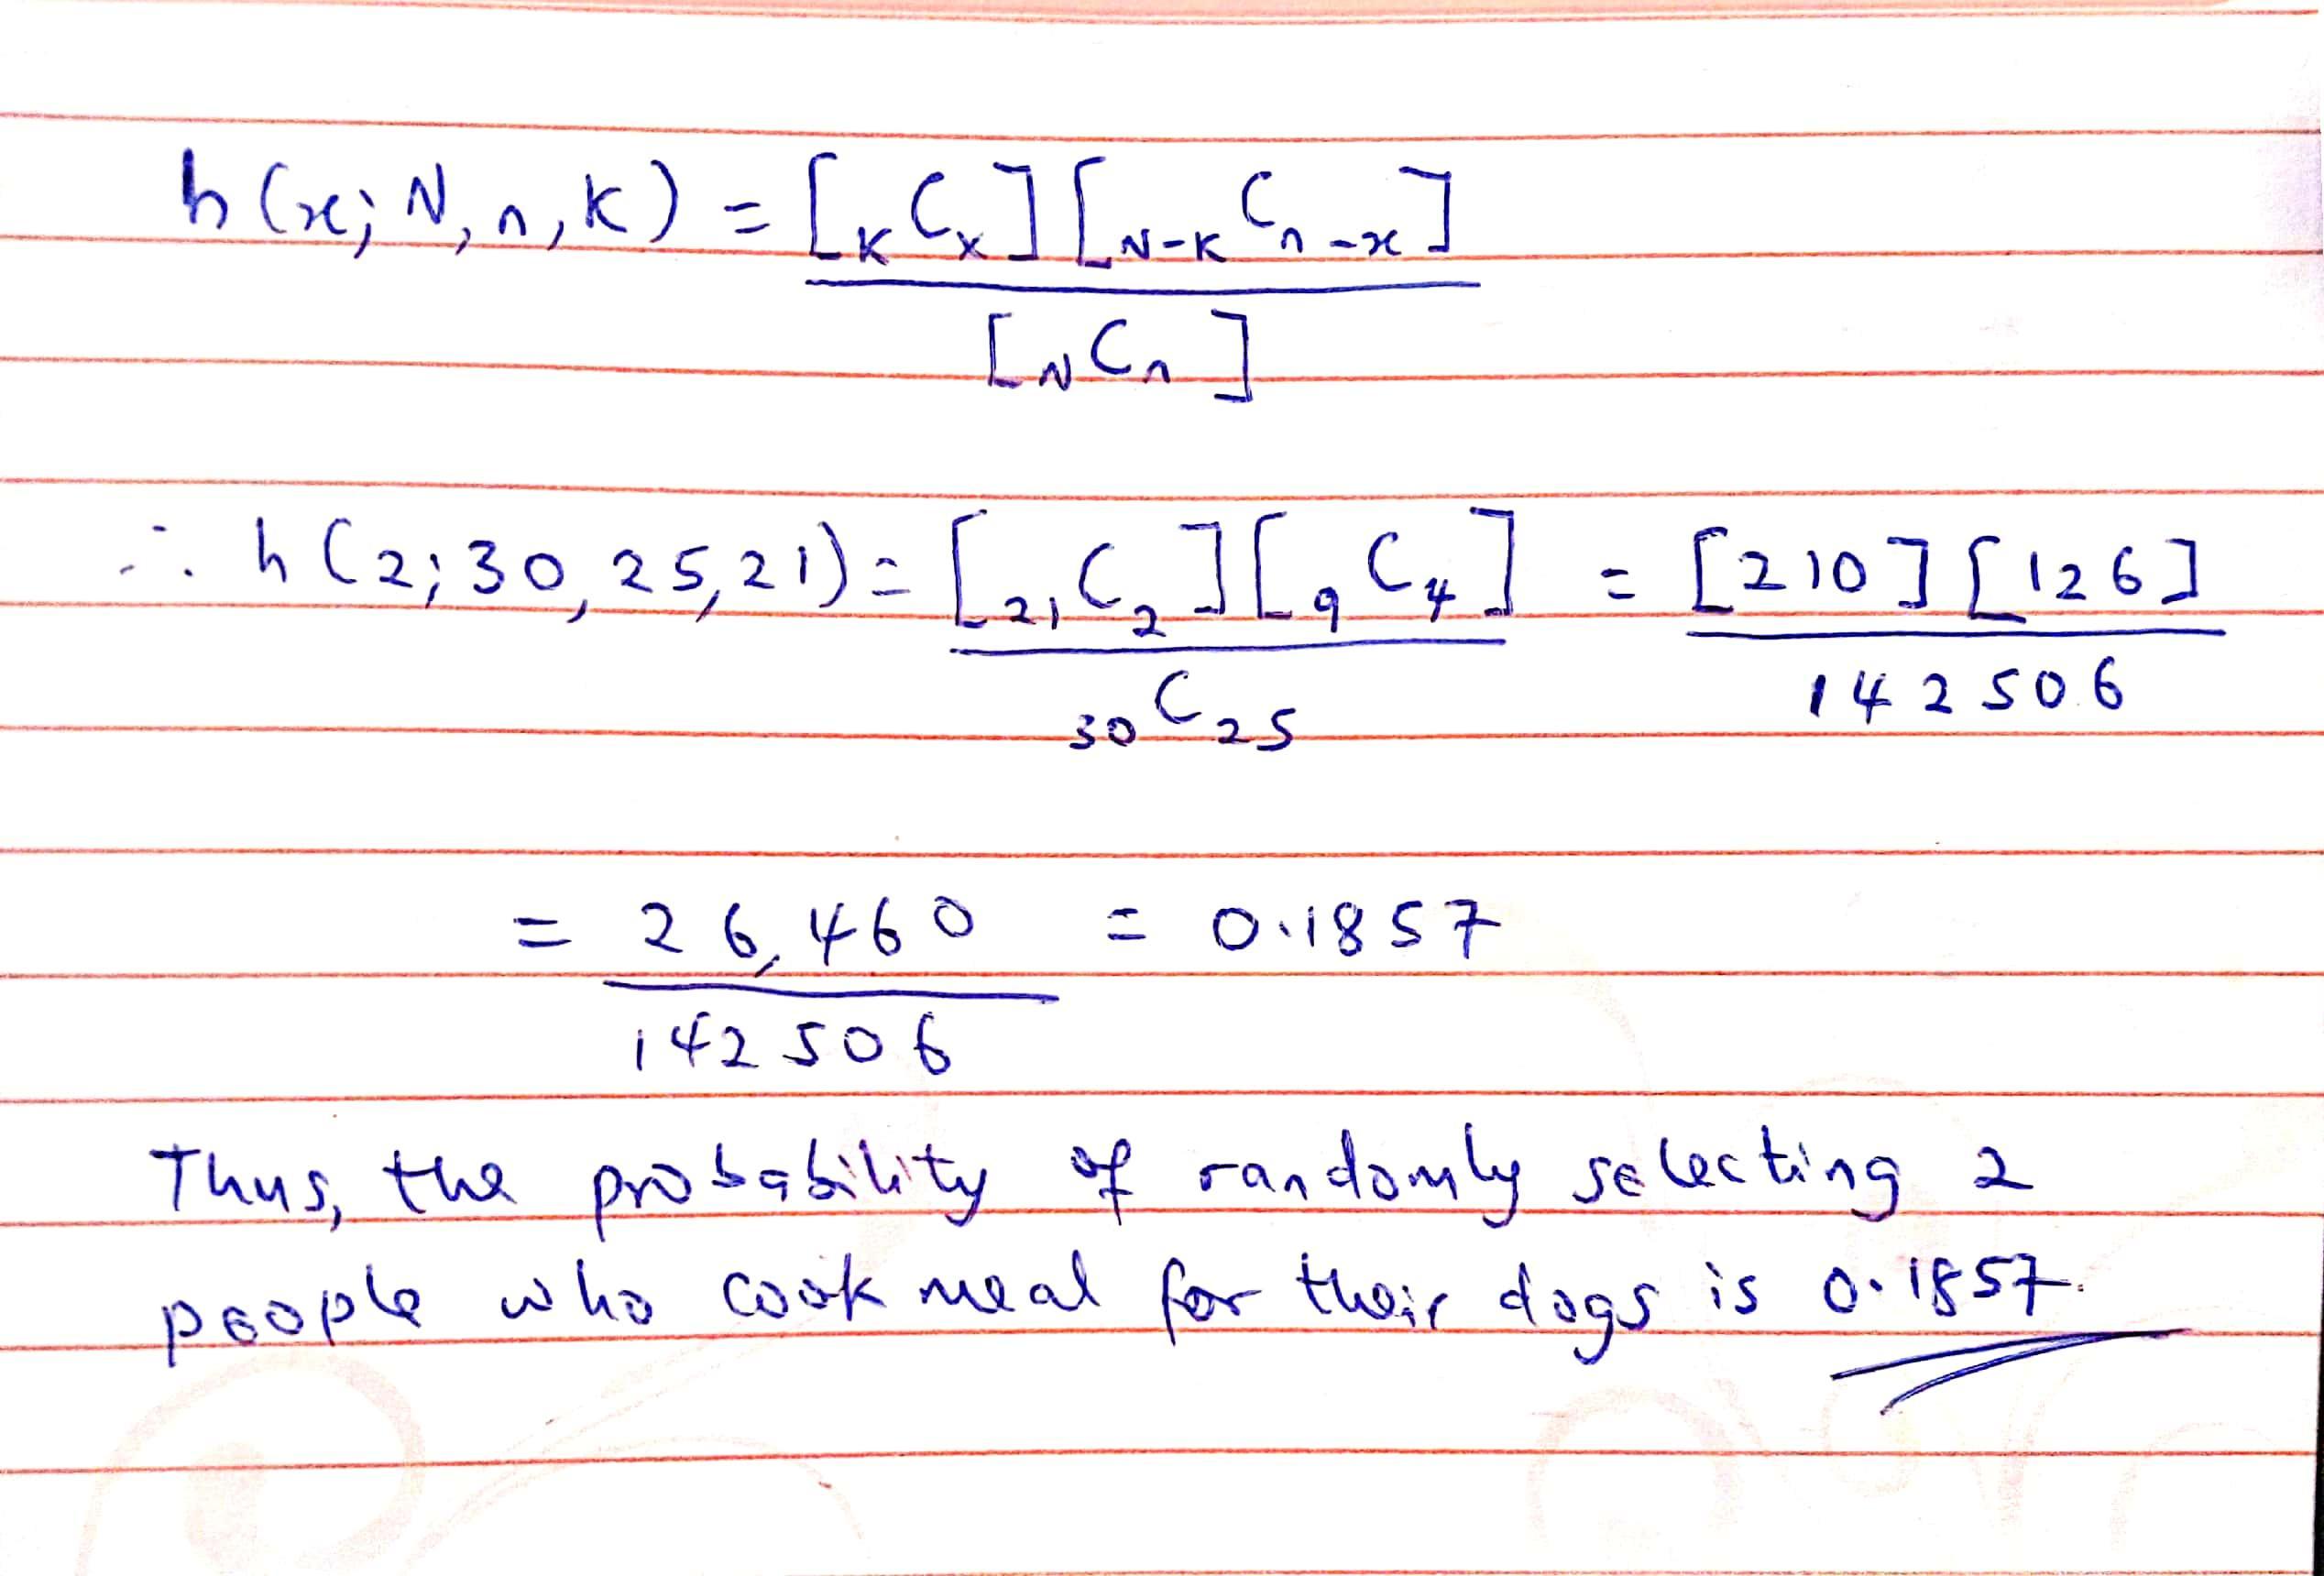 h(x; N, n, K) = [KCx] [N-KCn-x]
[NCn]
∴ h(2; 30, 25, 21) = [21C2] [9C4] = [210] [126]
30C25 142506
= 26,460 = 0.1857
142506
Thus, the probability of randomly selecting 2
people who cook meal for their dogs is 0.1857.